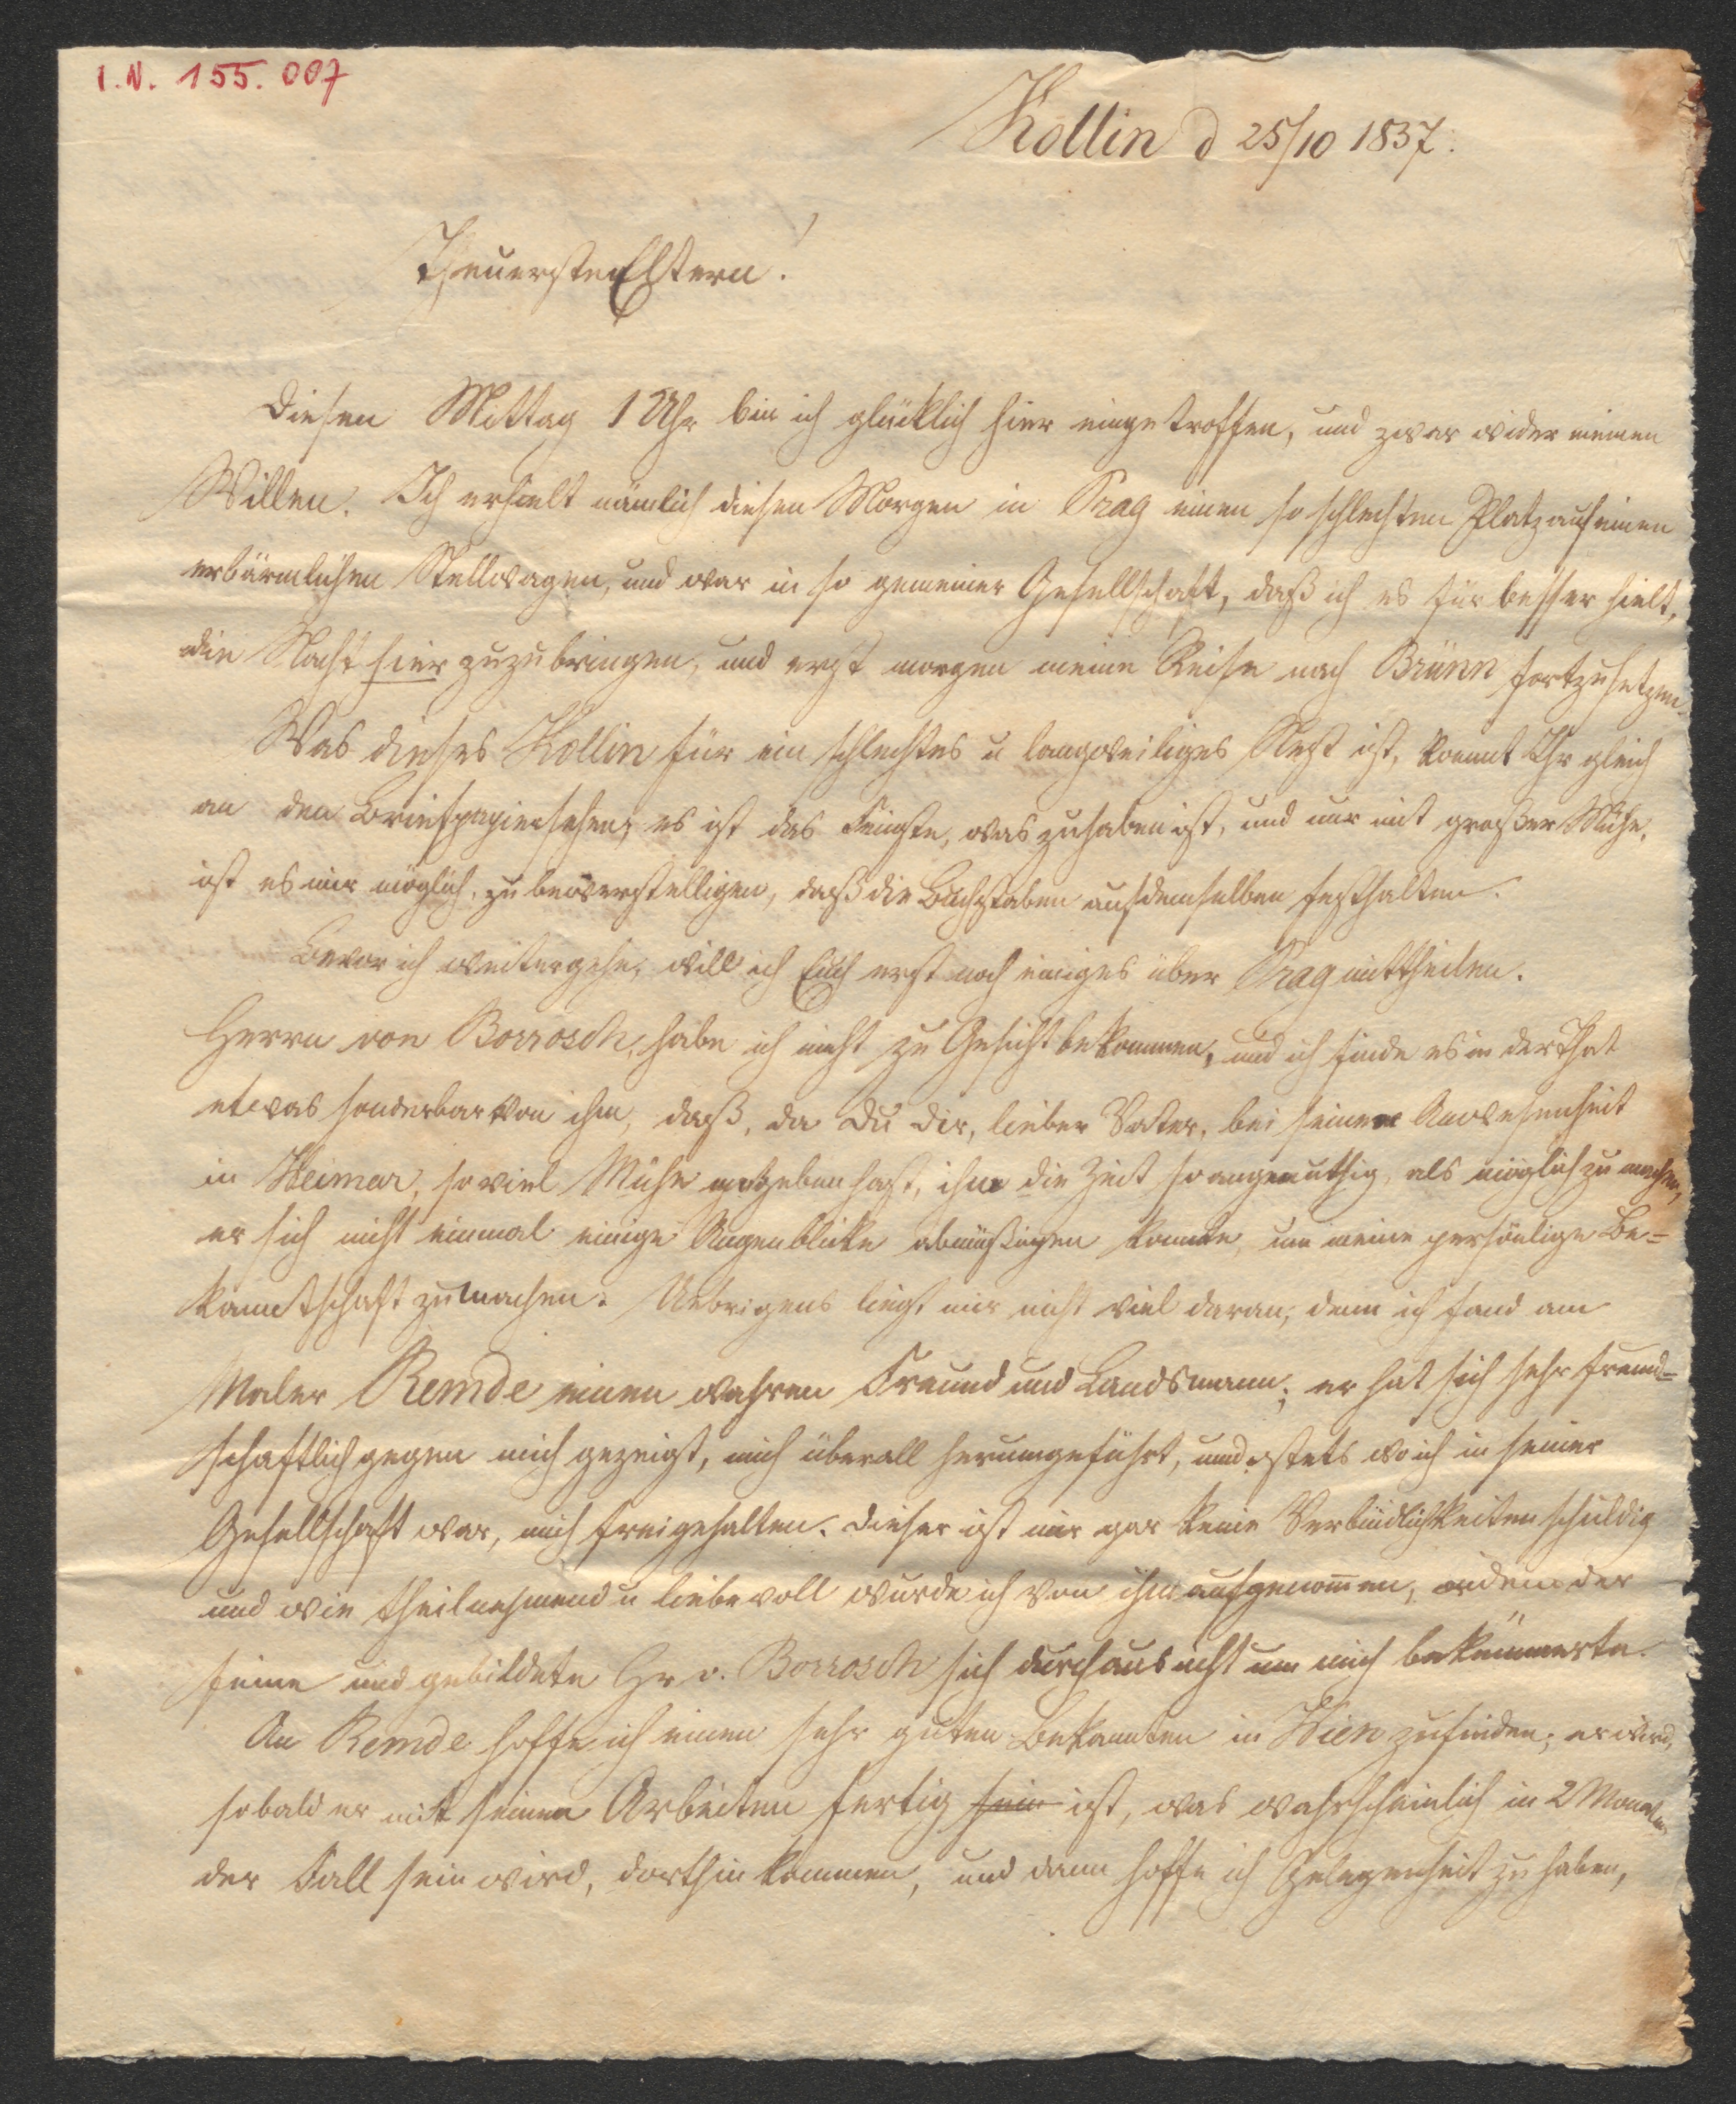 I.N. 155.007
Kollin d 25/10 1837.
Theuerste Eltern!
Diesen Mittag 1 Uhr bin ich glücklich hier eingetroffen, und zwar wider meinen
Willen. Ich erhielt nämlich diesen Morgen in Prag einen so schlechten Platz auf einen
erbärmlichen Stellwagen, und war in so gemeiner Gesellschaft, daß ich es für besser hielt,
die Nacht hier zuzubringen, und erst morgen meine Reise nach Brünn fortzusetzen.
Was dieses Kollin für ein schlechtes u langweiliges Nest ist, könnt Ihr gleich
an den Briefpapier sehen, es ist das Feinste, was zu haben ist, und nur mit großer Mühe,
ist es mir möglich, zu bewerstelligen, daß die Buchstaben auf demselben festhalten.
Bevor ich weitergehe, will ich Euch erst noch einiges über Prag mittheilen.
Herrn von Borrosch, habe ich nicht zu Gesicht bekommen, und ich finde es in der That
etwas sonderbar von ihm, daß, da Du dir, lieber Vater, bei seiner Anwesenheit
in Weimar, so viel Mühe gegeben hast, ihm die Zeit so angenuthig, als möglich zu machen,
er sich nicht einmal einige Augenblicke abmüßigen konnte, um meine persönlige Be-
kanntschaft zu machen. Uebrigens liegt mir nicht viel daran, denn ich fand am
Maler Remde einen wahren Freund und Landsmann; er hat sich sehr freund-
schaftlich gegen mich gezeigt, mich überall herumgeführt, und stets wo ich in seiner
Gesellschaft war, mich freigehalten. Dieser ist mir gar keine Verbindlichkeiten schuldig
und wie theilnehmend u liebevoll wurde ich von ihm aufgenommen, indem der
feine und gebildete Hr v. Borrosch sich durchaus nicht um mich bekümmerte.
An Remde hoffe ich einen sehr guten Bekannten in Wien zu finden; er wird,
sobald er mit seinen Arbeiten fertig sein ist, was wahrscheinlich in 2 Monaten
der Fall sein wird, dorthin kommen, und dann hoffe ich Gelegenheit zu haben,